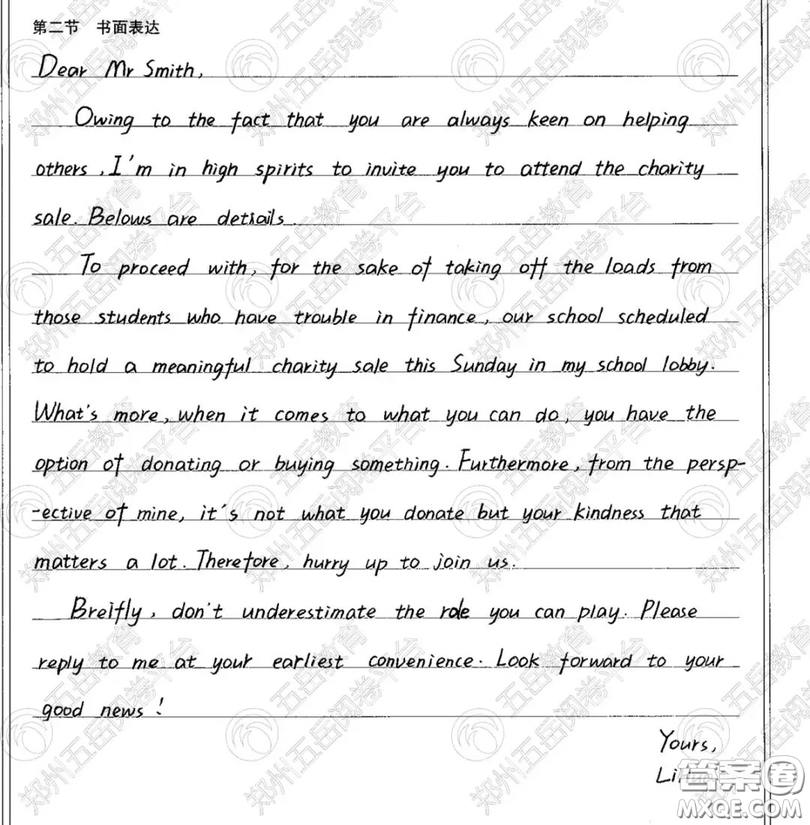 第二节 书面表达
Dear Mr Smith,
Owing to the fact that you are always keen on helping
others, I'm in high spirits to invite you to attend the charity
sale. Belows are details.
To proceed with, for the sake of taking off the loads from
those students who have trouble in finance, our school scheduled
to hold a meaningful charity sale this Sunday in my school lobby.
What's more, when it comes to what you can do, you have the
option of donating or buying something. Furthermore, from the persp-
-ective of mine, it's not what you donate but your kindness that
matters a lot. Therefore, hurry up to join us.
Breifly, don't underestimate the role you can play. Please
reply to me at your earliest convenience. Look forward to your
good news!
Yours,
答案圈
MXQE.COM
郑州五岳阅卷平台
五岳教育